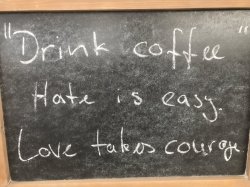 "Drink coffee"
Hate is easy.
Love takes courage